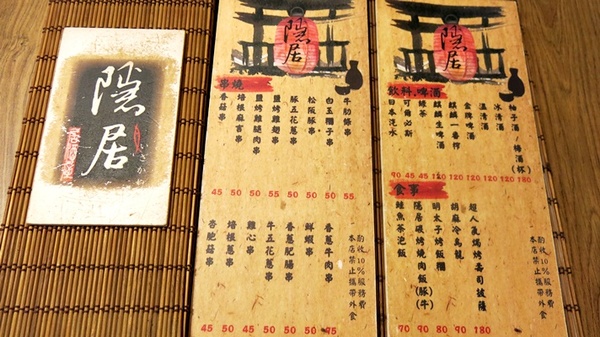 隱居
いざかや
隱居
串燒
牛肋條串
白玉糰子串
松阪豚串
豚五花蔥串
鹽烤雞翅串
鹽烤雞腿肉串
培根麻吉串
香菇串
45 50 50 55 50 50 50 55
酌收10%服務費
本店禁止攜帶外食
香蔥牛肉串
鮮蝦串
香蔥肥腸串
牛五花蔥串
雞心串
培根蔥串
杏鮑菇串
45 50 50 50 50 50 95
隱居
飲料.啤酒
柚子酒/梅酒(杯)
冰清酒
溫清酒
金牌啤酒
麒麟一番榨
麒麟生啤酒
綠茶
可爾必斯
日本汽水
90 45 45 120 120 120 120 120 180
食事
酌收10%服務費
本店禁止攜帶外食
超人氣焗烤壽司披薩
胡麻冷烏龍
明太子烤飯糰
隱居碳烤燒肉飯(豚/牛)
鮭魚茶泡飯
70 90 80 90 180